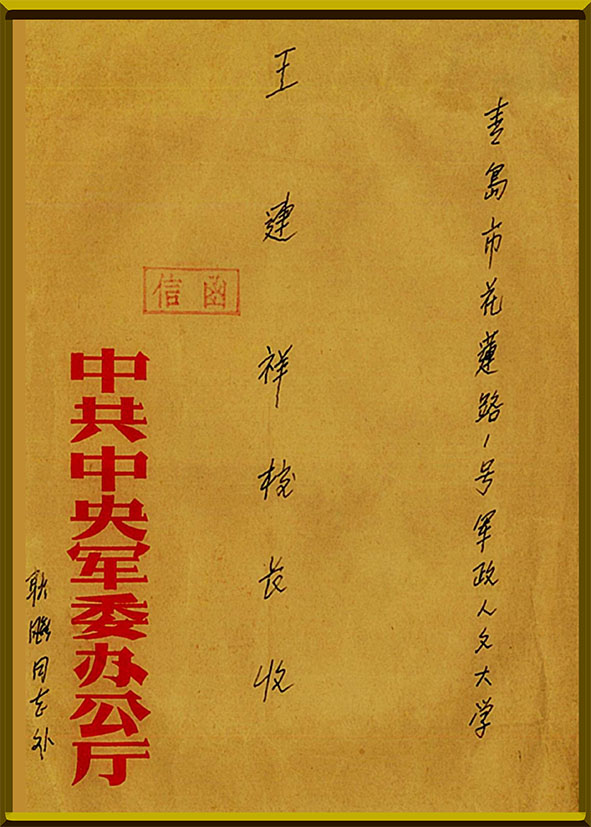 青島市花蓮路1号军政人文大学
王連祥校长收
信函
中共中央军委办公厅
同志